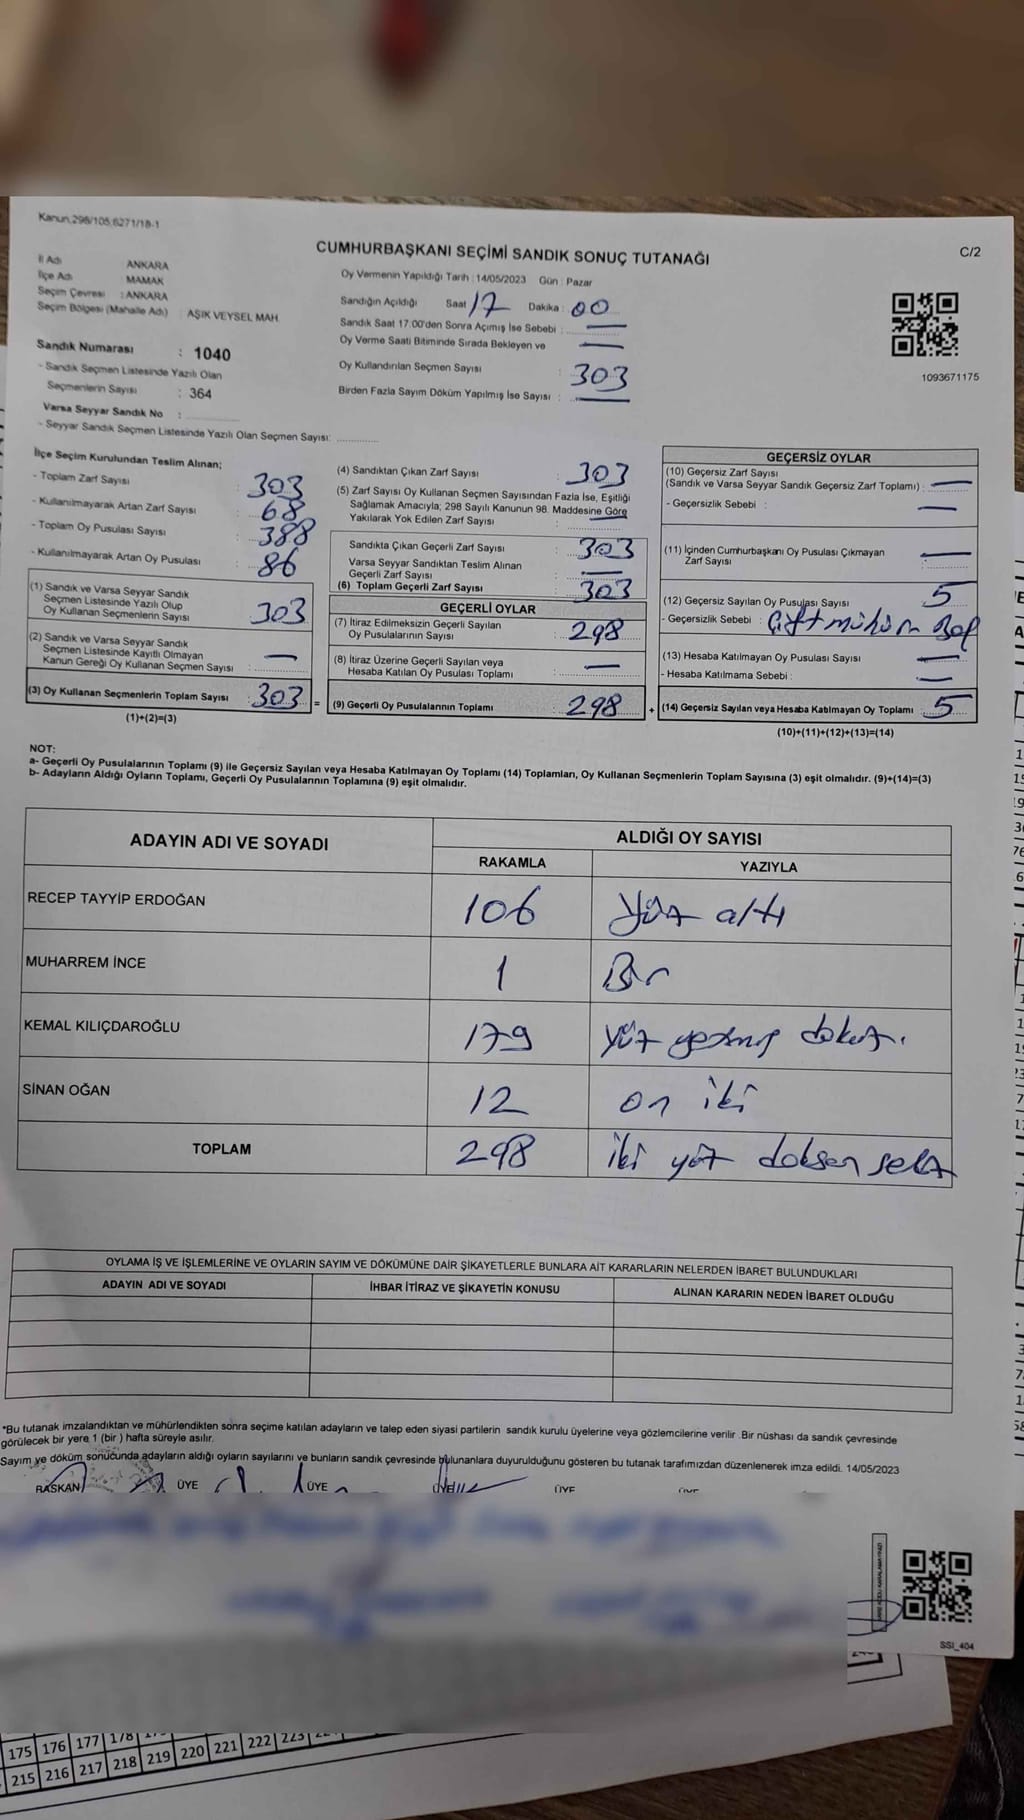 Kanun,298/105,6271/18-1
CUMHURBAŞKANI SEÇİMİ SANDIK SONUÇ TUTANAĞI
C/2
İl Adı ANKARA
İlçe Adı MAMAK
Seçim Çevresi : ANKARA
Seçim Bölgesi (Mahalle Adı) : AŞIK VEYSEL MAH.
Sandık Numarası : 1040
- Sandık Seçmen Listesinde Yazılı Olan
Seçmenlerin Sayısı : 364
Varsa Seyyar Sandık No :
- Seyyar Sandık Seçmen Listesinde Yazılı Olan Seçmen Sayısı:
Oy Vermenin Yapıldığı Tarih : 14/05/2023 Gün : Pazar
Sandığın Açıldığı Saat 17 Dakika : 00
Sandık Saat 17:00'den Sonra Açımış İse Sebebi : —
Oy Verme Saati Bitiminde Sırada Bekleyen ve —
Oy Kullandırılan Seçmen Sayısı : 303
Birden Fazla Sayım Döküm Yapılmış İse Sayısı : —
1093671175
İlçe Seçim Kurulundan Teslim Alınan;
- Toplam Zarf Sayısı : 303
- Kullanılmayarak Artan Zarf Sayısı : 68
- Toplam Oy Pusulası Sayısı : 388
- Kullanılmayarak Artan Oy Pusulası : 86
(1) Sandık ve Varsa Seyyar Sandık
Seçmen Listesinde Yazılı Olup
Oy Kullanan Seçmenlerin Sayısı : 303
(2) Sandık ve Varsa Seyyar Sandık
Seçmen Listesinde Kayıtlı Olmayan
Kanun Gereği Oy Kullanan Seçmen Sayısı : —
(3) Oy Kullanan Seçmenlerin Toplam Sayısı : 303 =
(1)+(2)=(3)
(4) Sandıktan Çıkan Zarf Sayısı : 303
(5) Zarf Sayısı Oy Kullanan Seçmen Sayısından Fazla İse, Eşitliği
Sağlamak Amacıyla; 298 Sayılı Kanunun 98. Maddesine Göre
Yakılarak Yok Edilen Zarf Sayısı : —
Sandıkta Çıkan Geçerli Zarf Sayısı : 303
Varsa Seyyar Sandıktan Teslim Alınan
Geçerli Zarf Sayısı : —
(6) Toplam Geçerli Zarf Sayısı : 303
GEÇERLİ OYLAR
(7) İtiraz Edilmeksizin Geçerli Sayılan
Oy Pusulalarının Sayısı : 298
(8) İtiraz Üzerine Geçerli Sayılan veya
Hesaba Katılan Oy Pusulası Toplamı : —
(9) Geçerli Oy Pusulalarının Toplamı : 298 +
GEÇERSİZ OYLAR
(10) Geçersiz Zarf Sayısı
(Sandık ve Varsa Seyyar Sandık Geçersiz Zarf Toplamı) : —
- Geçersizlik Sebebi : —
(11) İçinden Cumhurbaşkanı Oy Pusulası Çıkmayan
Zarf Sayısı : —
(12) Geçersiz Sayılan Oy Pusulası Sayısı : 5
- Geçersizlik Sebebi : Çift mühür
(13) Hesaba Katılmayan Oy Pusulası Sayısı : —
- Hesaba Katılmama Sebebi : —
(14) Geçersiz Sayılan veya Hesaba Katılmayan Oy Toplamı : 5
(10)+(11)+(12)+(13)=(14)
NOT:
a- Geçerli Oy Pusulalarının Toplamı (9) ile Geçersiz Sayılan veya Hesaba Katılmayan Oy Toplamı (14) Toplamları, Oy Kullanan Seçmenlerin Toplam Sayısına (3) eşit olmalıdır. (9)+(14)=(3)
b- Adayların Aldığı Oyların Toplamı, Geçerli Oy Pusulalarının Toplamına (9) eşit olmalıdır.
ADAYIN ADI VE SOYADI ALDIĞI OY SAYISI
RAKAMLA YAZIYLA
RECEP TAYYİP ERDOĞAN 106 yüz altı
MUHARREM İNCE 1 Bir
KEMAL KILIÇDAROĞLU 179 yüz yetmiş dokuz.
SİNAN OĞAN 12 on iki
TOPLAM 298 iki yüz doksan sekiz
OYLAMA İŞ VE İŞLEMLERİNE VE OYLARIN SAYIM VE DÖKÜMÜNE DAİR ŞİKAYETLERLE BUNLARA AİT KARARLARIN NELERDEN İBARET BULUNDUKLARI
ADAYIN ADI VE SOYADI İHBAR İTİRAZ VE ŞİKAYETİN KONUSU ALINAN KARARIN NEDEN İBARET OLDUĞU
*Bu tutanak imzalandıktan ve mühürlendikten sonra seçime katılan adayların ve talep eden siyasi partilerin sandık kurulu üyelerine veya gözlemcilerine verilir .Bir nüshası da sandık çevresinde
görülecek bir yere 1 (bir ) hafta süreyle asılır.
Sayım ve döküm sonucunda adayların aldığı oyların sayılarını ve bunların sandık çevresinde bulunanlara duyurulduğunu gösteren bu tutanak tarafımızdan düzenlenerek imza edildi. 14/05/2023
BAŞKAN ÜYE ÜYE ÜYE ÜYE
SSI_404
175 176 177 178
215 216 217 218 219 220 221 222 223